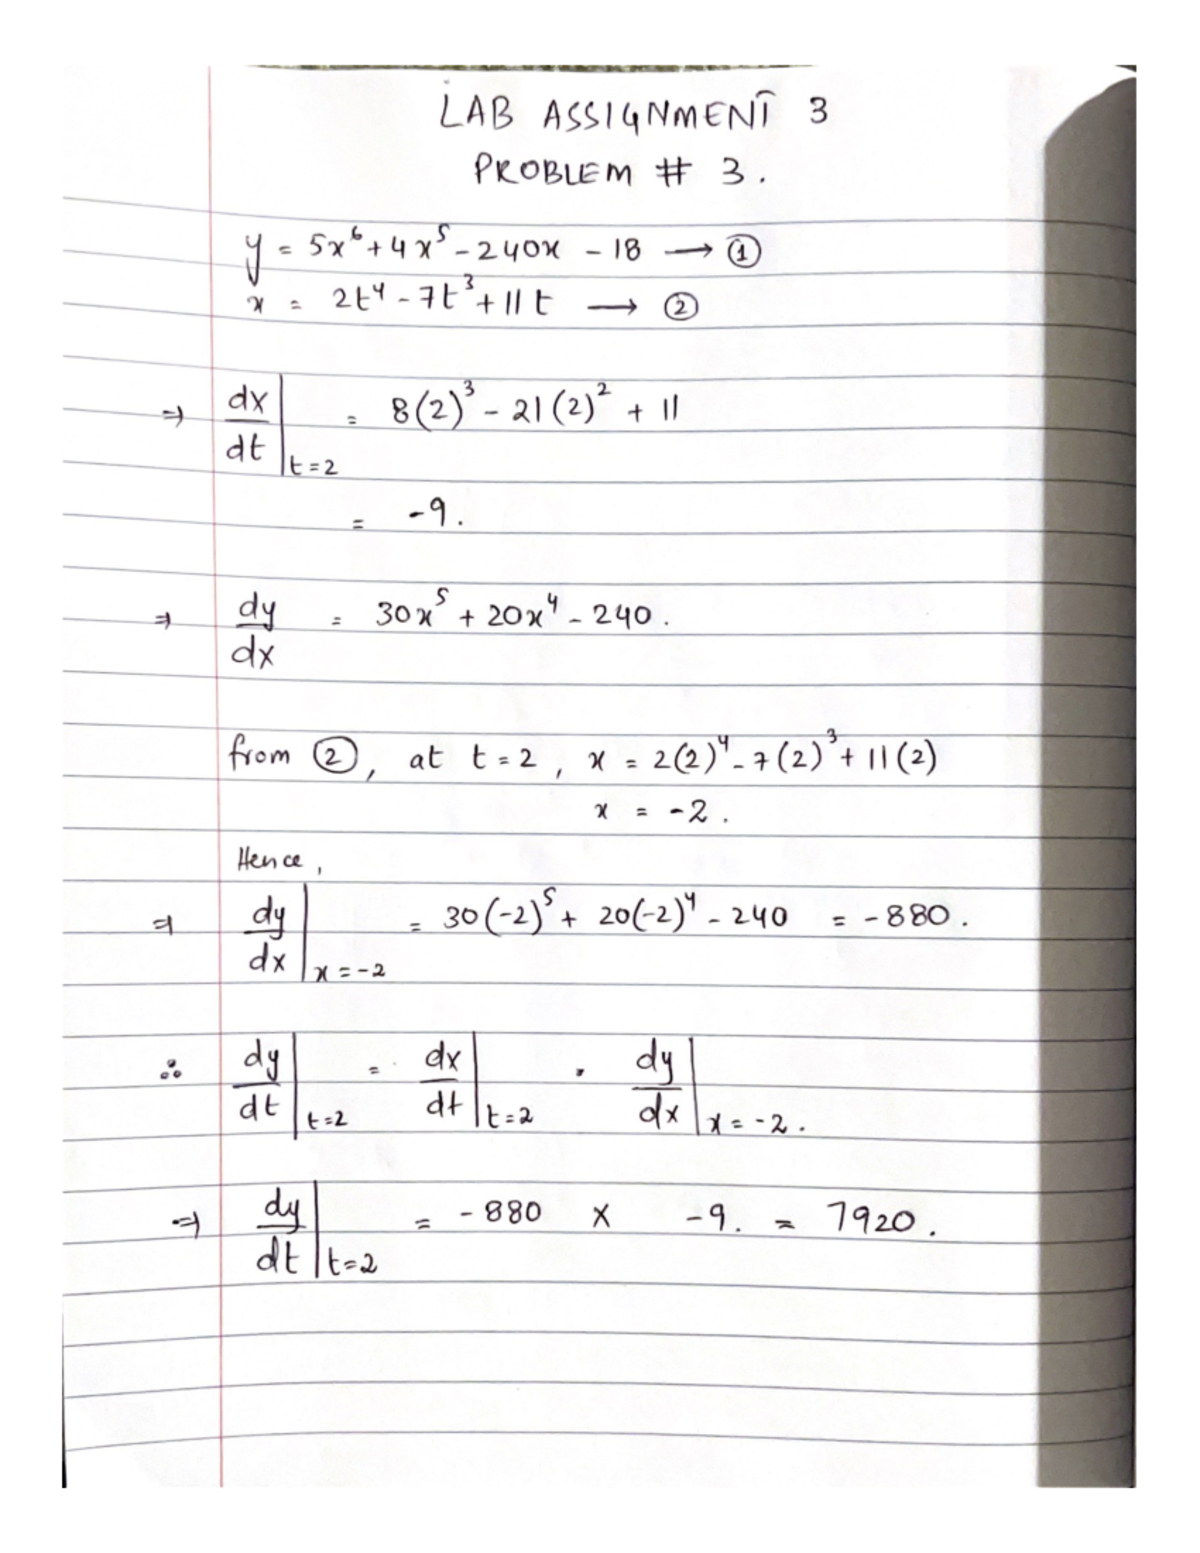 LAB ASSIGNMENT 3
PROBLEM # 3.
y = 5x⁶ + 4x⁵ - 240x - 18 → ①
x = 2t⁴ - 7t³ + 11t → ②
⇒ dx/dt |t=2 = 8(2)³ - 21(2)² + 11
= -9.
⇒ dy/dx = 30x⁵ + 20x⁴ - 240.
from ②, at t=2, x = 2(2)⁴ - 7(2)³ + 11(2)
x = -2.
Hence,
⇒ dy/dx |x=-2 = 30(-2)⁵ + 20(-2)⁴ - 240 = -880.
∴ dy/dt |t=2 = dx/dt |t=2 · dy/dx |x=-2.
⇒ dy/dt |t=2 = -880 × -9. = 7920.